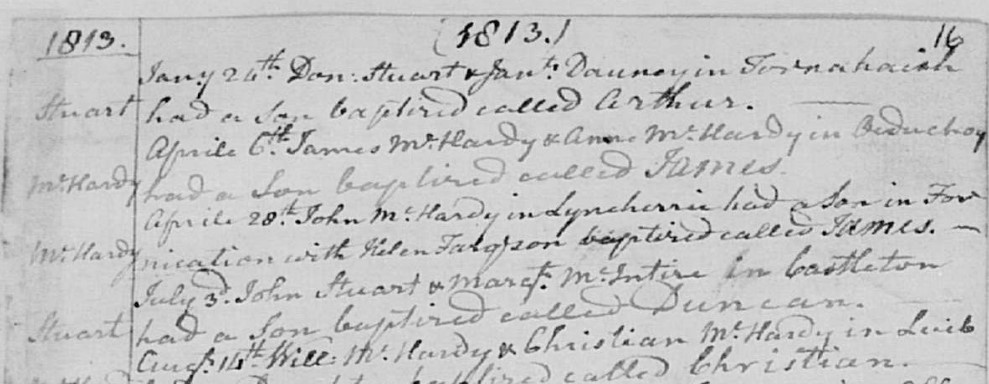 1813. (1813.) 16
Jany 24th Don: Stuart & Jant. Dauney in Tornahaish
Stuart had a Son baptized called Arthur.
Aprile 6th James McHardy & Anne McHardy in
McHardy had a Son baptized called James.
Aprile 28th John McHardy in Lyncherrie had a Son in For
McHardy nication with Helen Fargson baptized called James. —
July 3d. John Stuart & Margt. McIntire in Castleton
Stuart had a Son baptized called Duncan.
Augt. 14th Will: McHardy & Christian McHardy in
baptized called Christian.